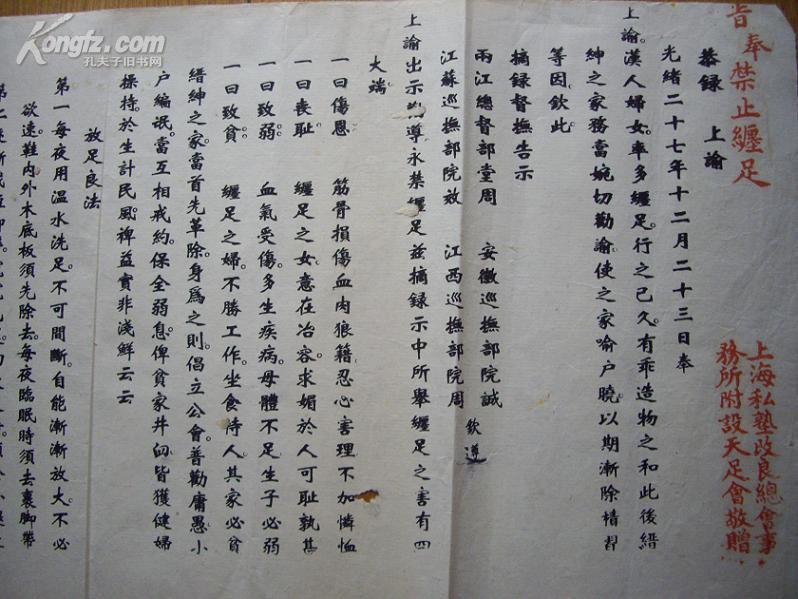 旨奉禁止纏足
上海私塾改良總會事
務所附設天足會敬贈
恭録 上諭
光緒二十七年十二月二十三日奉
上諭。漢人婦女。率多纏足。行之已久。有乖造物之和。此後縉
紳之家。務當婉切勸諭。使之家喻户曉。以期漸除積習
等因。欽此。
摘録督撫告示
兩江總督部堂周 安徽巡撫部院誠
江蘇巡撫部院效 江西巡撫部院周
欽遵
上諭出示 導永禁纏足。茲摘録示中所舉纏足之害有四
大端。
一曰傷恩 筋骨損傷。血肉狼籍。忍心害理。不加憐恤
一曰喪恥 纏足之女。意在冶容。求媚於人。可恥孰甚
一曰致弱。 血氣受傷。多生疾病。母體不足。生子必弱
一曰致貧。 纏足之婦。不勝工作。坐食待人。其家必貧
縉紳之家。當首先革除。身爲之則。倡立公會。普勸庸愚。小
户編氓。當互相戒約。保全弱息。俾貧家井臼。皆獲健婦
操持。於生計民風。裨益實非淺鮮云云
放足良法
第一每夜用温水洗足。不可間斷。自能漸漸放大。不必
欲速。鞋内外木底板須先除去。每夜臨眠時須去裹脚帶
第二
孔夫子旧书网
Kongfz.com